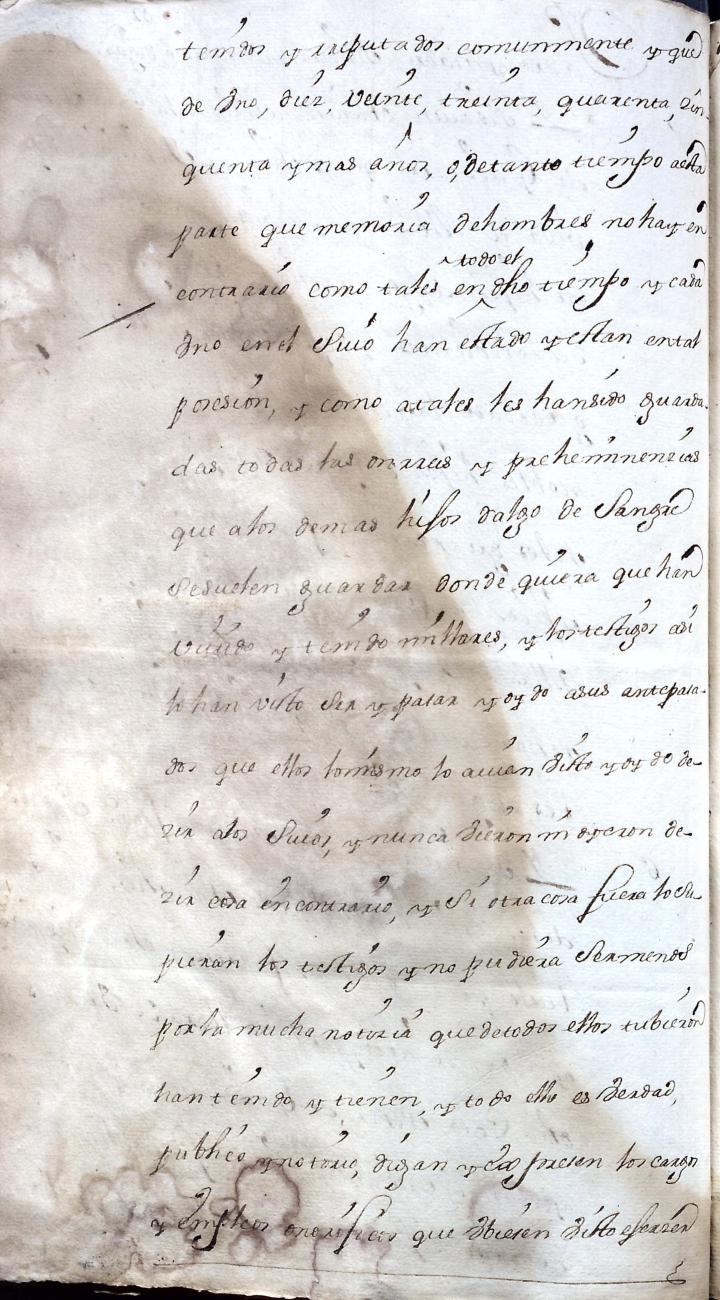 tenidos y rreputados comunmente y que
de Uno, diez, veinte, treinta, quarenta, zin-
quenta y mas años, o, de tanto tiempo a esta
parte que memoria de hombres no hay en
todo el
contrario como tales en dho tiempo y cada
Uno en el Suio han estado y estan en tal
posesion, y como a tales les han sido guarda-
das todas las onrras y preheminenzias
que a los demas hijos dalgo de Sangre
se suelen guardar donde quiera que han
viuido y tenido millares, y los testigos asi
lo han visto ser y pasar y oydo a sus antepasa-
dos que ellos lo mismo lo auian visto y oydo de-
zir a los Suios, y nunca vieron ni oyeron de-
zir cosa en contrario, y Si otra cosa fuera lo Su-
pieran los testigos y no pudiera Ser menos
por la mucha notoria que de todos ellos tubieron
han tenido y tienen, y todo ello es Verdad,
publico y notorio, digan y expresen los cargos
y empleos onorificos que Ubiesen visto exerzer